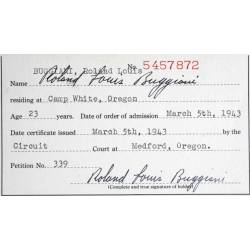 BUGGIANI, Roland Louis No. 5457872
Name Roland Louis Buggiani
residing at Camp White, Oregon
Age 23 years. Date of order of admission March 5th, 1943
Date certificate issued March 5th, 1943 by the
Circuit Court at Medford, Oregon.
Petition No. 339
Roland Louis Buggiani
(Complete and true signature of holder)